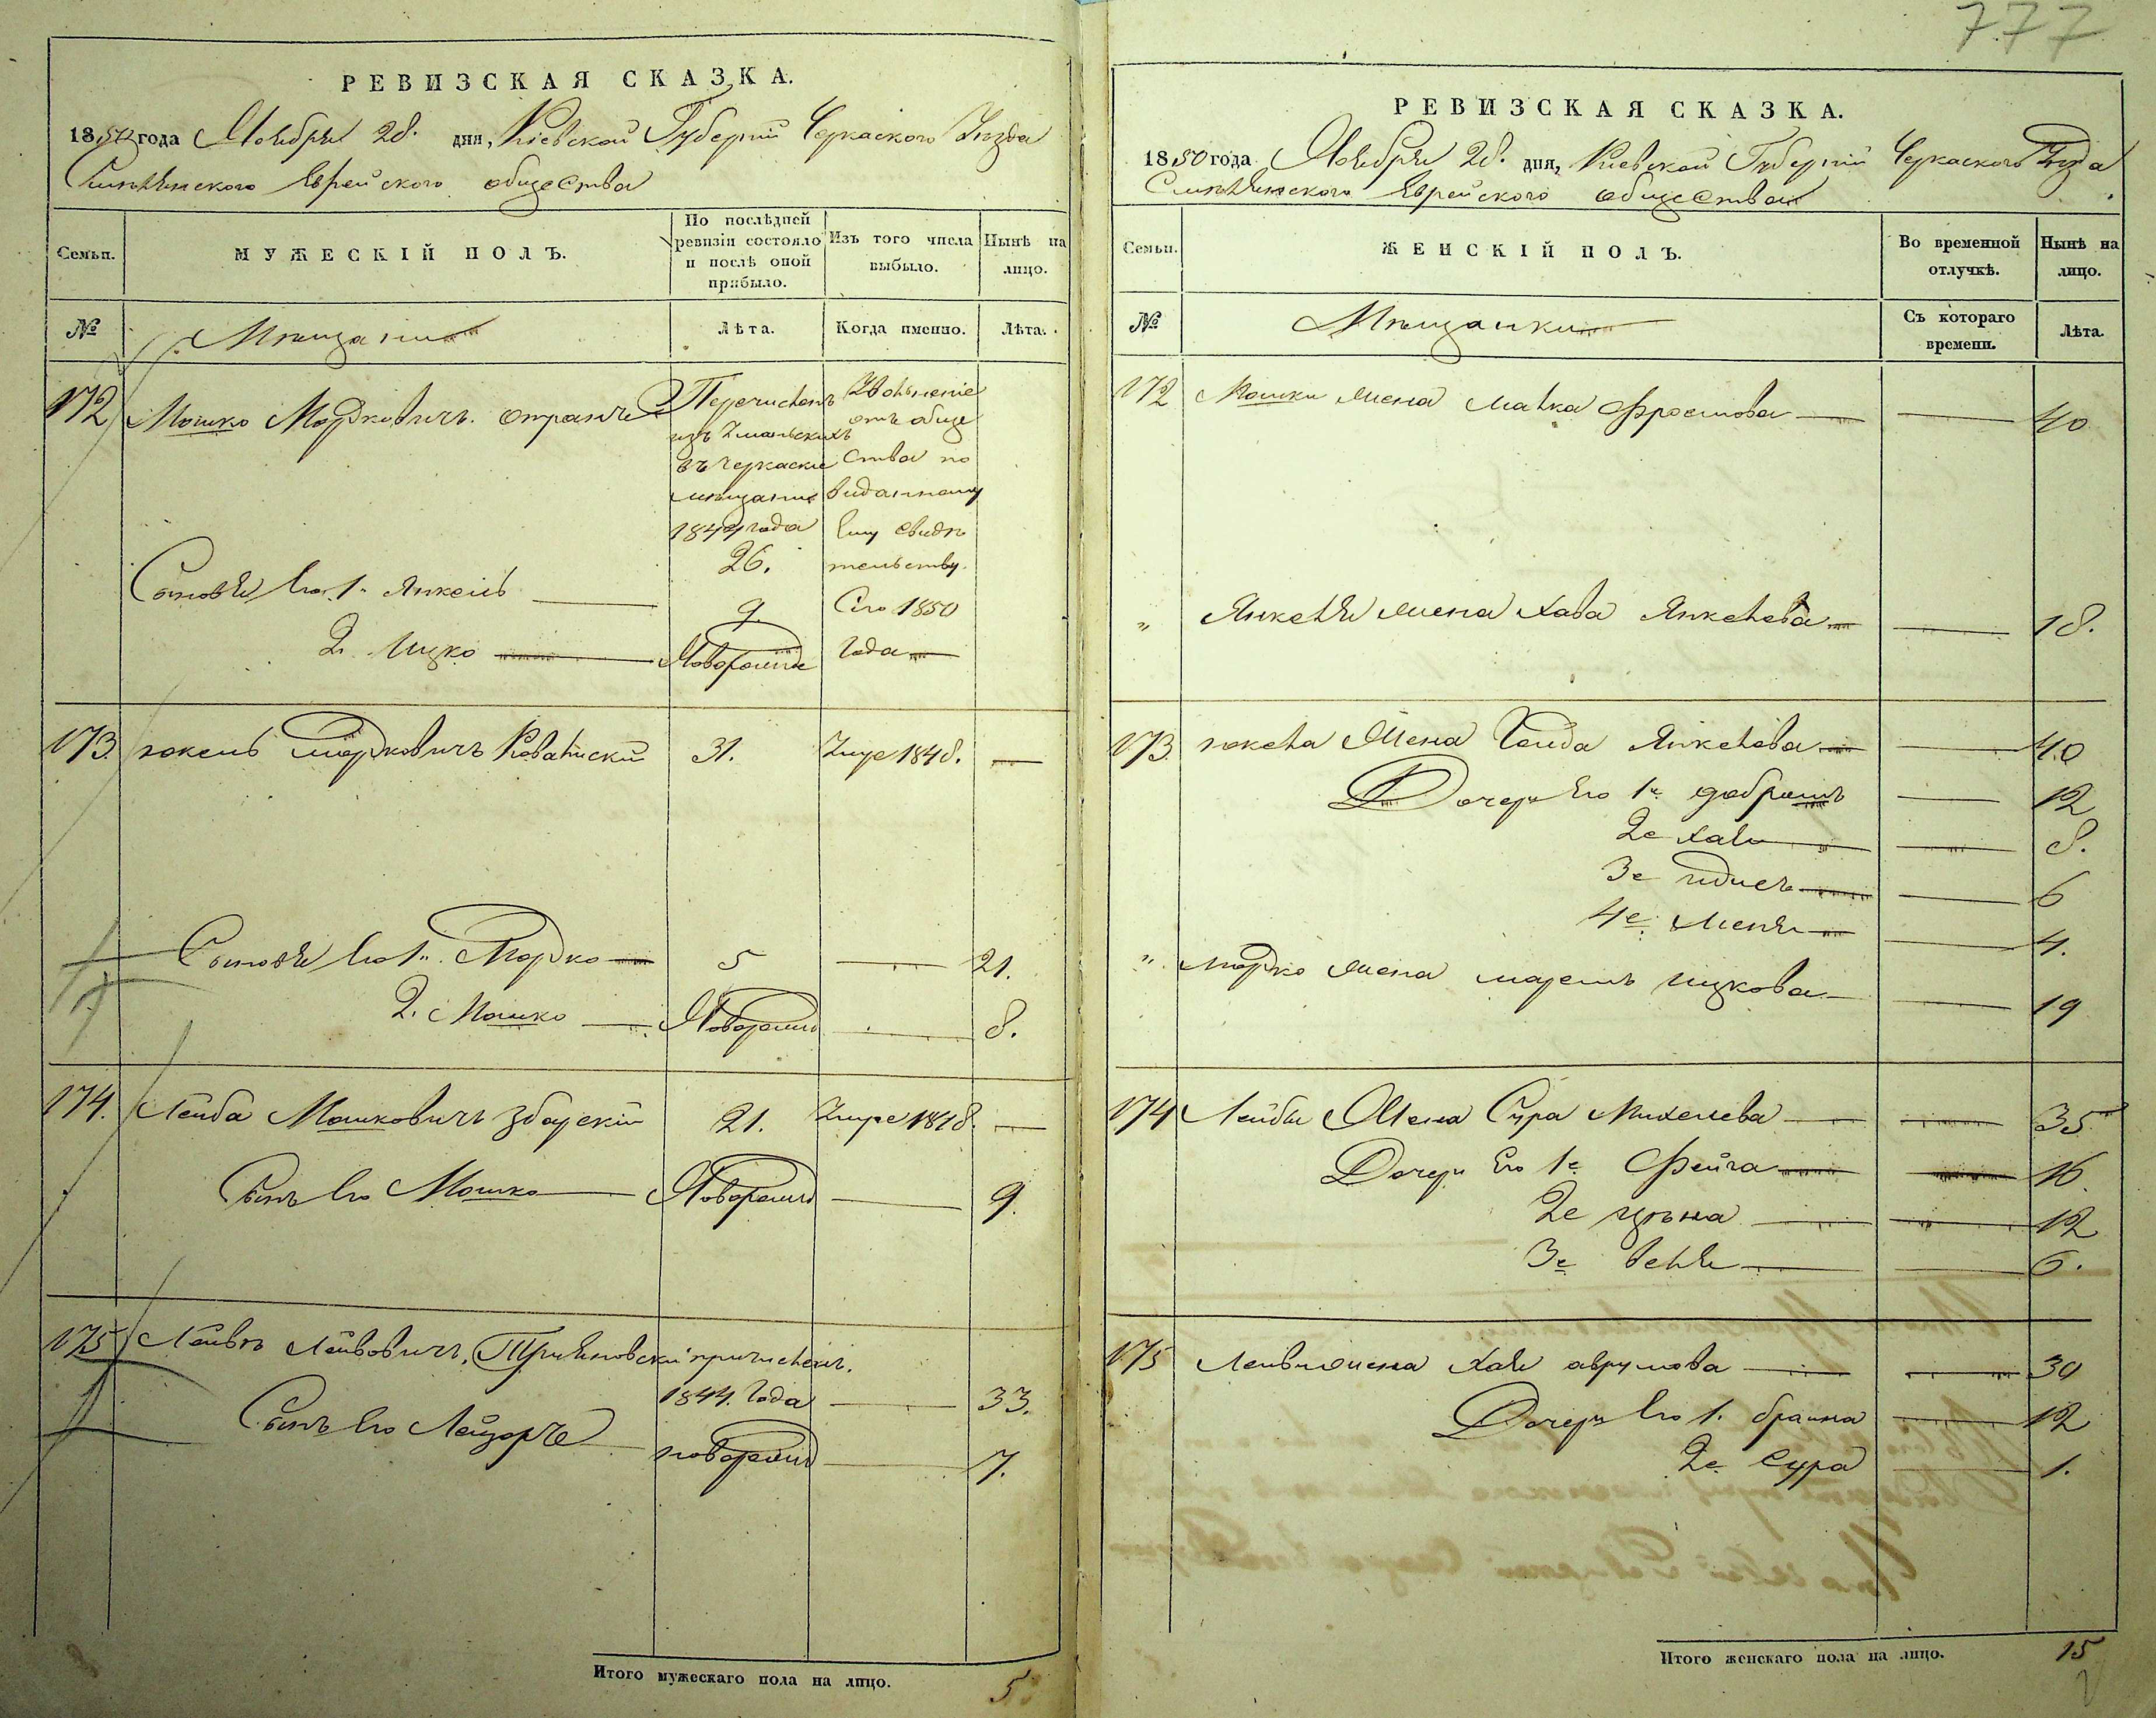 РЕВИЗСКАЯ СКАЗКА.
1850 года Ноября 28. дня, Кіевской Губерніи Черкаского Уѣзда
Смѣлянского Еврейского общества
Семьи.
МУЖЕСКІЙ ПОЛЪ.
По послѣдней ревизіи состояло и послѣ оной прибыло.
Изъ того числа выбыло.
Нынѣ на лицо.
№
Мѣщане
Лѣта.
Когда именно.
Лѣта.
172 Мошко Мордковичъ
Перечисленъ
изъ Уманьскихъ
въ Черкаскіе
мещане
1844 года
26.
от обще
ства по
виданному
Ему свидѣ
тельству
Сего 1850
Года
Сыновя Его 1. Янкель 9.
2. Ицко Новорожде
173. Иокель Мордковичъ 31. Умре 1848.
Сыновя Его 1. Мордко 5 21.
2. Мошко Новорожд 8.
174. Лейба Мошковичъ Збарскій 21. Умре 1848.
Сынъ Его Мошко Новорожд 9.
175 Лейвович, причисленъ.
1844. Года 33.
Сынъ Его новорожд 7.
Итого мужескаго пола на лицо. 5
777
РЕВИЗСКАЯ СКАЗКА.
1850 года Ноября 28. дня, Киевской Губерній Черкаского Уѣзда
Смѣлянского Еврейского общества
Семьи.
ЖЕНСКІЙ ПОЛЪ.
Во временной отлучкѣ.
Нынѣ на лицо.
№
Мѣщанки
Съ котораго времени.
Лѣта.
172 Мошки жена Малка Фроимова 40
" Янкеля жена Хава Янкелева 18.
173. Иокеля Жена Янкелева 40
Дочери Его 1я 12
2е Хая 8.
3е 6
4е. Меня 4.
" Мордко жена Ицкова 19
174 Лейбы Жена Сура Михелева 35
Дочери Его 1е Фейга 16.
2е 12
3е 6.
175 жена Хая Аврумова 30
Дочери Его 1. Браина 12
2е Сура 1.
Итого женскаго пола на лицо. 15